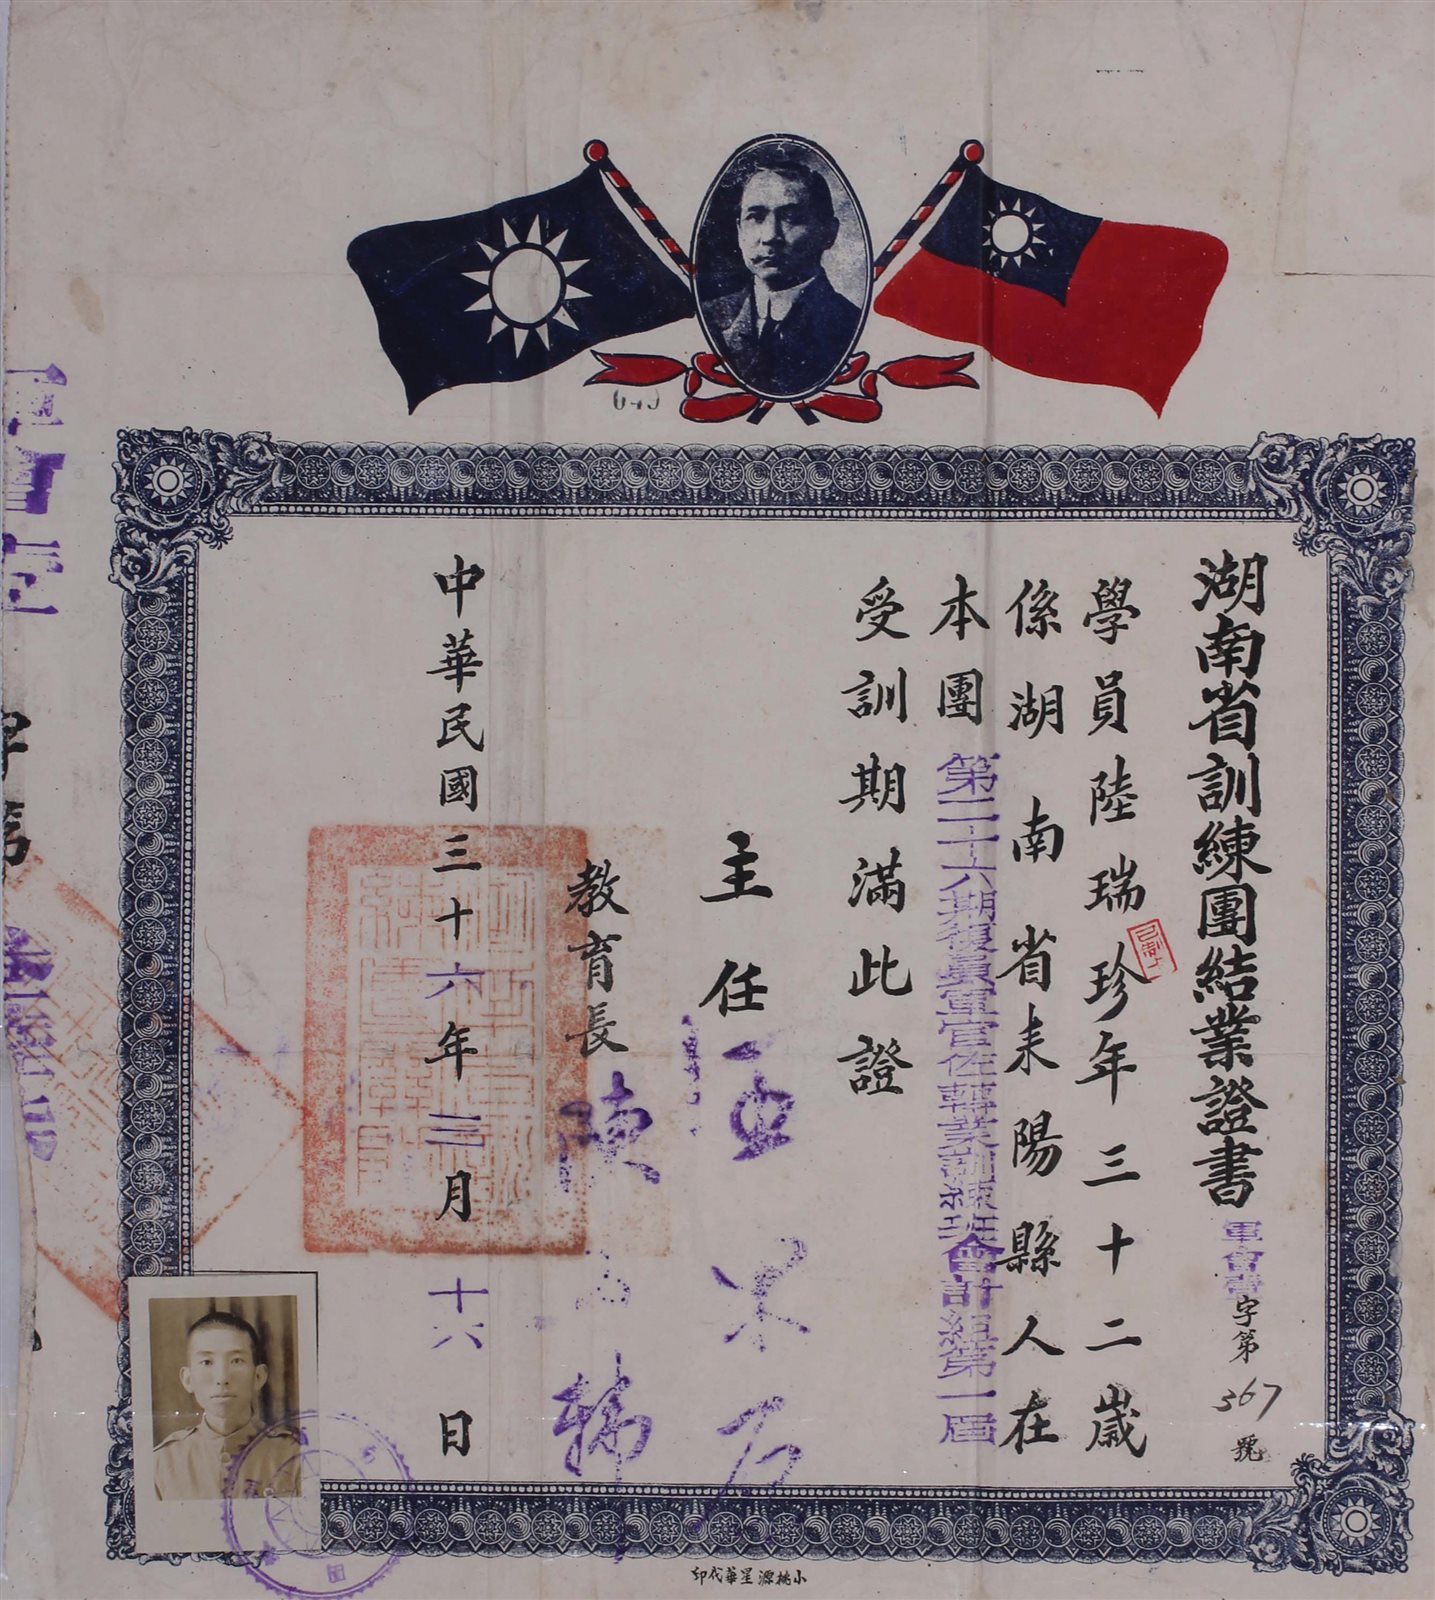 湖南省訓練團結業證書
軍會 字第367號
學員陸瑞珍年三十二歲
係湖南省耒陽縣人在
本團第二十六期復員軍官佐轉業訓練班會計組第一屆
受訓期滿此證
主任
教育長
中華民國三十六年三月十六日
小桃源星華代印
649